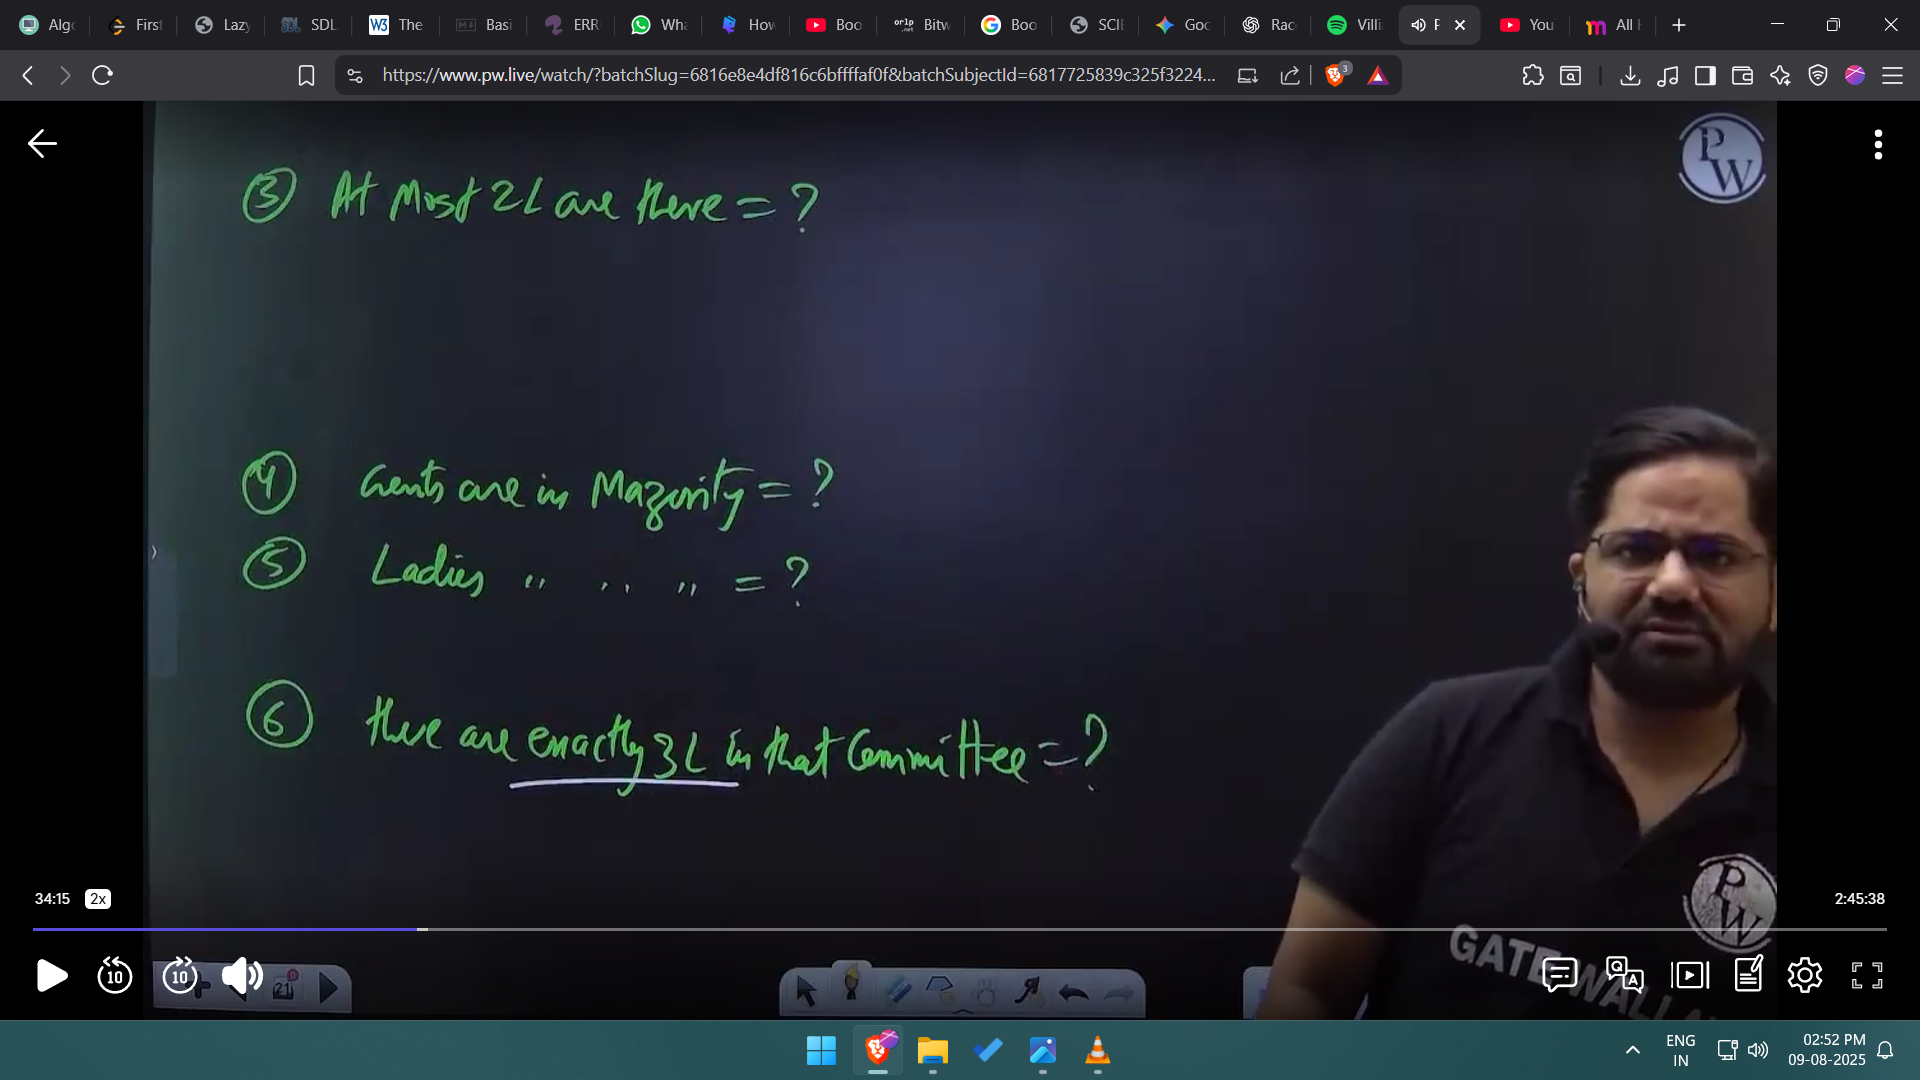 Algo
First
Lazy
SDL
W3 The
Basi
ERR
Wha
How
Boo
orlp .net Bitw
Boo
SCIE
Goo
Rac
Villi
F
You
All
https://www.pw.live/watch/?batchSlug=6816e8e4df816c6bffffaf0f&batchSubjectId=6817725839c325f3224...
3
PW
③ At Most 2L are there = ?
④ Gents are in Mazority = ?
⑤ Ladies " " " = ?
⑥ there are exactly 3L in that Committee = ?
34:15 2x
2:45:38
PW
GATE WALLA
10
10
21
QA
ENG
IN
02:52 PM
09-08-2025